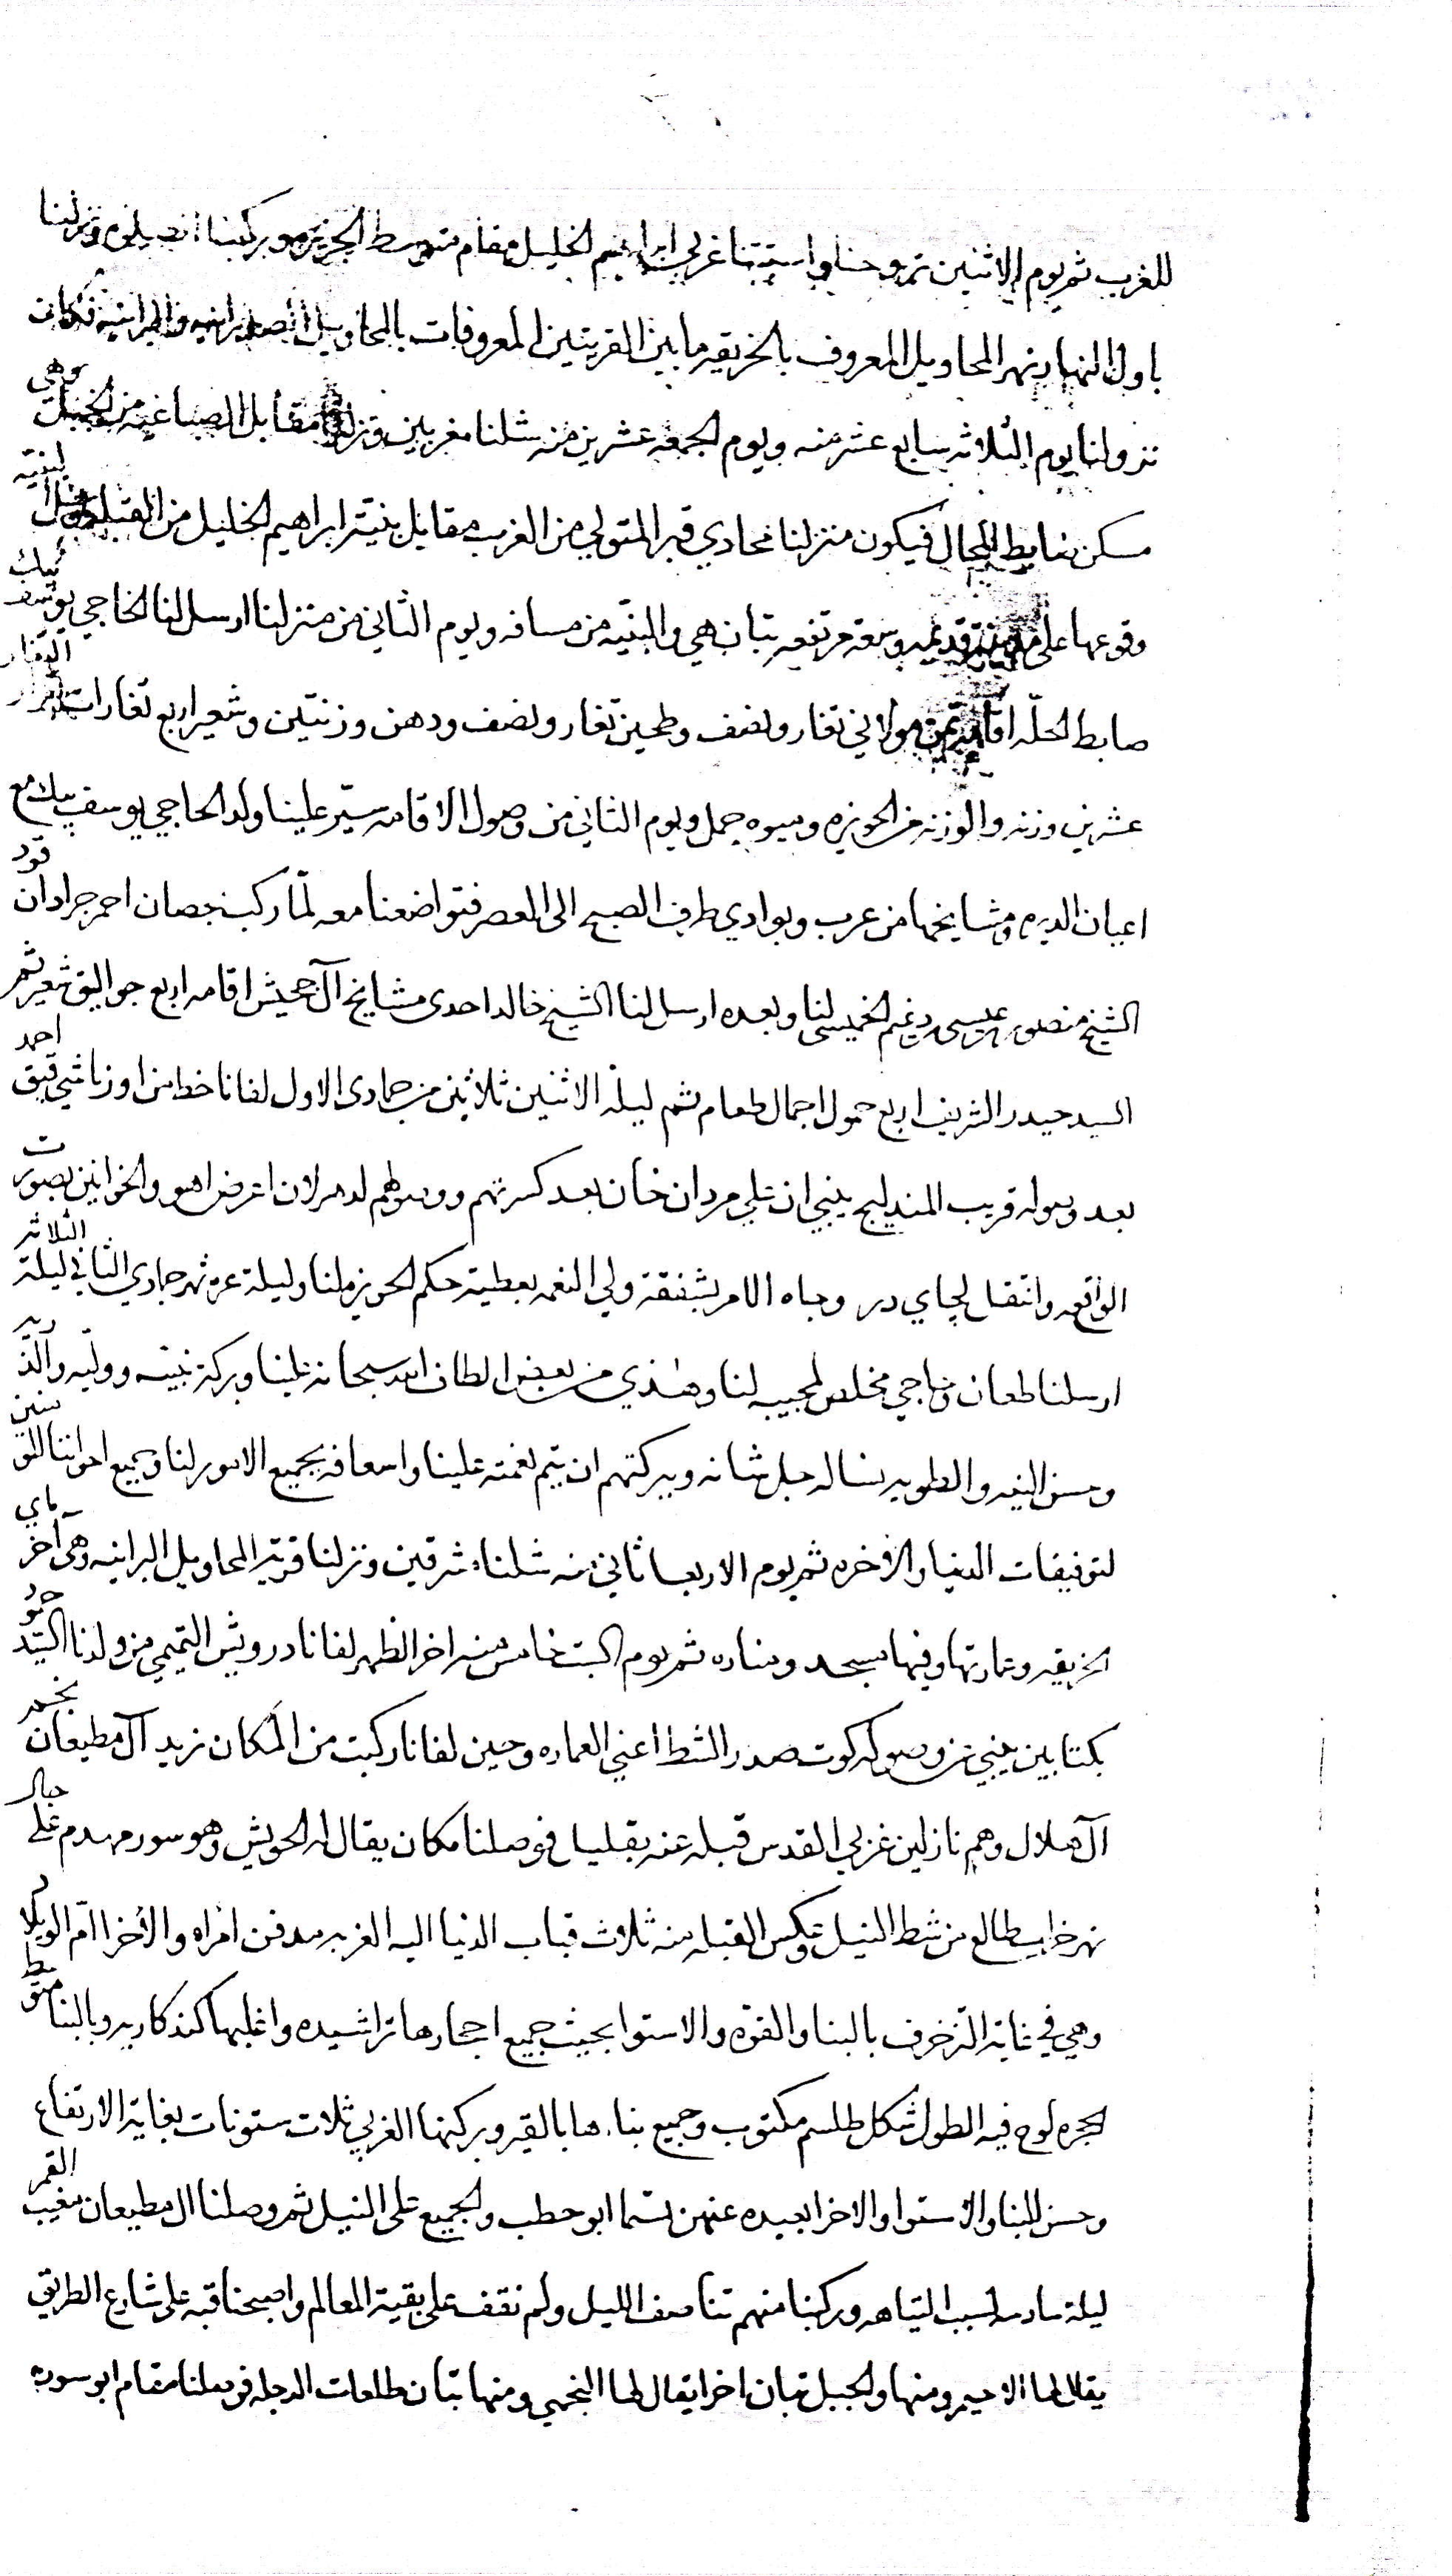 للغرب ثم يوم الاثنين تروحنا واستبتنا غربي ابراهيم الخليل مقام متوسط الجزيره وركبنا ونزلنا
باول النهار نهر المحاويل المعروف بالخريقيه ما بين القريتين المعروفات بالمحاويل والبرانيه فكان
نزولنا يوم الثلاثه سابع عشر منه ويوم الجمعه عشرين منه شلنا مغربين ونزلنا مقابل الصباغيه من الجبل وهي
مسكن ضابط المحال فيكون منزلنا محادي قبر المتولي من الغرب مقابل بنية ابراهيم الخليل من القبله لبنية
وقوعها على قديمه وسعة مرتفعه تبان هي والبنيه من مسافه ويوم الثاني من منزلنا ارسل لنا الحاجي يوسف بيك
ضابط الحلّه اقامة تمن مولاني تغار ونصف وطحين تغار ونصف ودهن وزنتين وشعير اربع تغارات التغار
عشرين وزنه والوزنه من الحويزه وميوه جمل ويوم الثاني من وصول الاقامه سيّر علينا ولد الحاجي يوسف بيك مع
اعيان الديره ومشايخها من عرب وبوادي طرف الصبح الى العصر فتواضعنا معه لمّا ركب بحصان احمر جرادان قود
الشيخ منصور عيسى دغيم الخميسي لنا وبعده ارسل لنا الشيخ خالد احدى مشايخ آل جحيش اقامه اربع جواليق شعير ثم
السيد حيدر الشريف اربع حمول اجمال طعام ثم ليلة الاثنين ثلاثين من جمادى الاول لفانا خط من اوزباشي قيق احمد
بعد وصوله قريب المنديلج ينبي ان علي مردان خان بعد كسرتهم ووصولهم اعرض اهو والخوانين بصورت
الواقعه وانتقال لجاي در وجاه الامر بشفقة ولي النعمه بعطية حكم الحويزه لنا وليلة غرة شهر جمادي الثاني ليلة الثلاثه
ارسلنا طعان وناجي مخلص لمجيبه لنا وهذي من بعض الطاف الله سبحانه علينا وبركة نبيّه ووليّه والذريه
وحسن النيه والطويه نساله جل شانه وببركتهم ان يتم نعمته علينا واسعافه بجميع الامور لنا وجميع اخواننا المؤمنين
لتوفيقات الدنيا والاخره ثم يوم الاربعا ثاني منه شلنا مشرقين ونزلنا قرية المحاويل البرانيه وهي آخر ماي
الخريقيه وعمارتها وفيها مسجد ومناره ثم يوم السبت خامس منه اخر الظهر لفانا درويش التميمي من ولدنا السيّد جود
بكتابين ينبي عن وصوله كوت صدر الشط اعني العماره وحين لفانا ركبت من المكان نريد آل مطيعان
آل هلال وهم نازلين غربي القدس قبله عنه بقليل فوصلنا مكان يقال له الحويش وهو سور مهدم على جال
نهر خراب طالع من شط النيل وعكس القبله منه ثلاث قباب الدنيا اليه الغربيه مدفن امراه والاخرا امّ الويلاد
وهي في غاية الزخرف بالبنا والقوه والاستوا بحيث جميع احجارها تراشيده واغلبها كنده كاريه وبالبنا متوسط
الحجره لوح فيه الطول شكل طلسم مكتوب وجميع بناءها بالقير وبركنها الغربي ثلاث ستونات بغاية الارتفاع
وحسن البنا والاستوا والاخرا بعيده عنهن تسما ابو حطب والجميع على النيل ثم وصلنا ال مطيعان مغيب القمر
ليلة سادسه لسبب التياهه وركبنا منهم تناصف الليل ولم نقف على بقية المعالم واصبحنا قبه على شارع الطريق
يقال لها الاحيمر ومنها والجبل تبان اخرا يقال لها النجمي ومنها تبان طلعات الدجله فوصلنا مقام ابو سوره